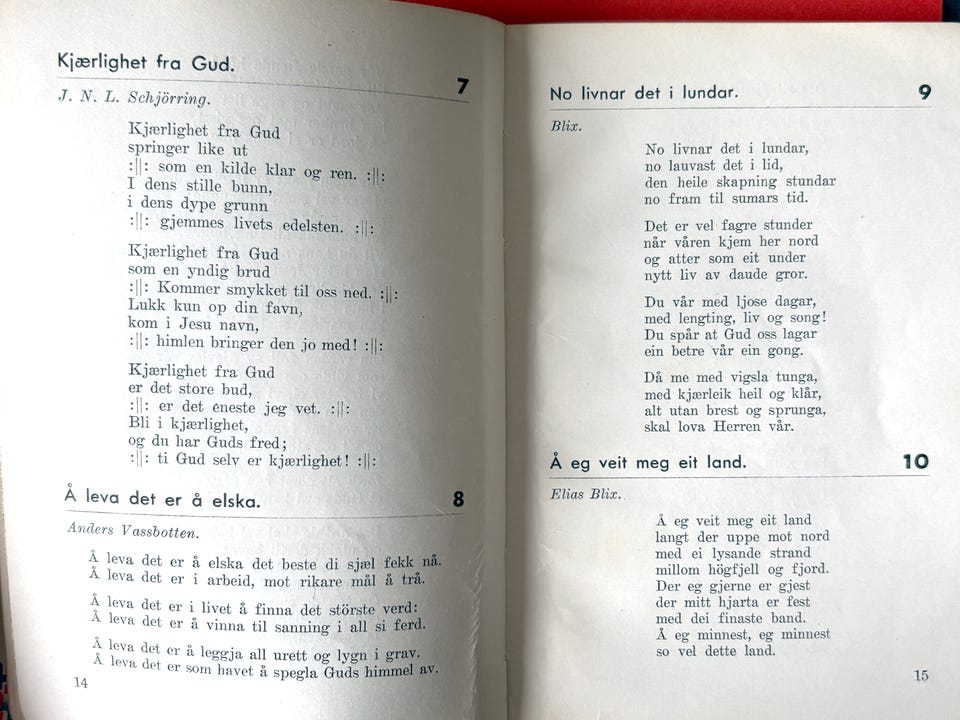 Kjærlighet fra Gud.
7
J. N. L. Schjörring.
Kjærlighet fra Gud
springer like ut
:||: som en kilde klar og ren. :||:
I dens stille bunn,
i dens dype grunn
:||: gjemmes livets edelsten. :||:
Kjærlighet fra Gud
som en yndig brud
:||: Kommer smykket til oss ned. :||:
Lukk kun op din favn,
kom i Jesu navn,
:||: himlen bringer den jo med! :||:
Kjærlighet fra Gud
er det store bud,
:||: er det eneste jeg vet. :||:
Bli i kjærlighet,
og du har Guds fred;
:||: ti Gud selv er kjærlighet! :||:
Å leva det er å elska.
8
Anders Vassbotten.
Å leva det er å elska det beste di sjæl fekk nå.
Å leva det er i arbeid, mot rikare mål å trå.
Å leva det er i livet å finna det störste verd:
Å leva det er å vinna til sanning i all si ferd.
Å leva det er å leggja all urett og lygn i grav.
Å leva det er som havet å spegla Guds himmel av.
14
No livnar det i lundar.
9
Blix.
No livnar det i lundar,
no lauvast det i lid,
den heile skapning stundar
no fram til sumars tid.
Det er vel fagre stunder
når våren kjem her nord
og atter som eit under
nytt liv av daude gror.
Du vår med ljose dagar,
med lengting, liv og song!
Du spår at Gud oss lagar
ein betre vår ein gong.
Då me med vigsla tunga,
med kjærleik heil og klår,
alt utan brest og sprunga,
skal lova Herren vår.
Å eg veit meg eit land.
10
Elias Blix.
Å eg veit meg eit land
langt der uppe mot nord
med ei lysande strand
millom högfjell og fjord.
Der eg gjerne er gjest
der mitt hjarta er fest
med dei finaste band.
Å eg minnest, eg minnest
so vel dette land.
15